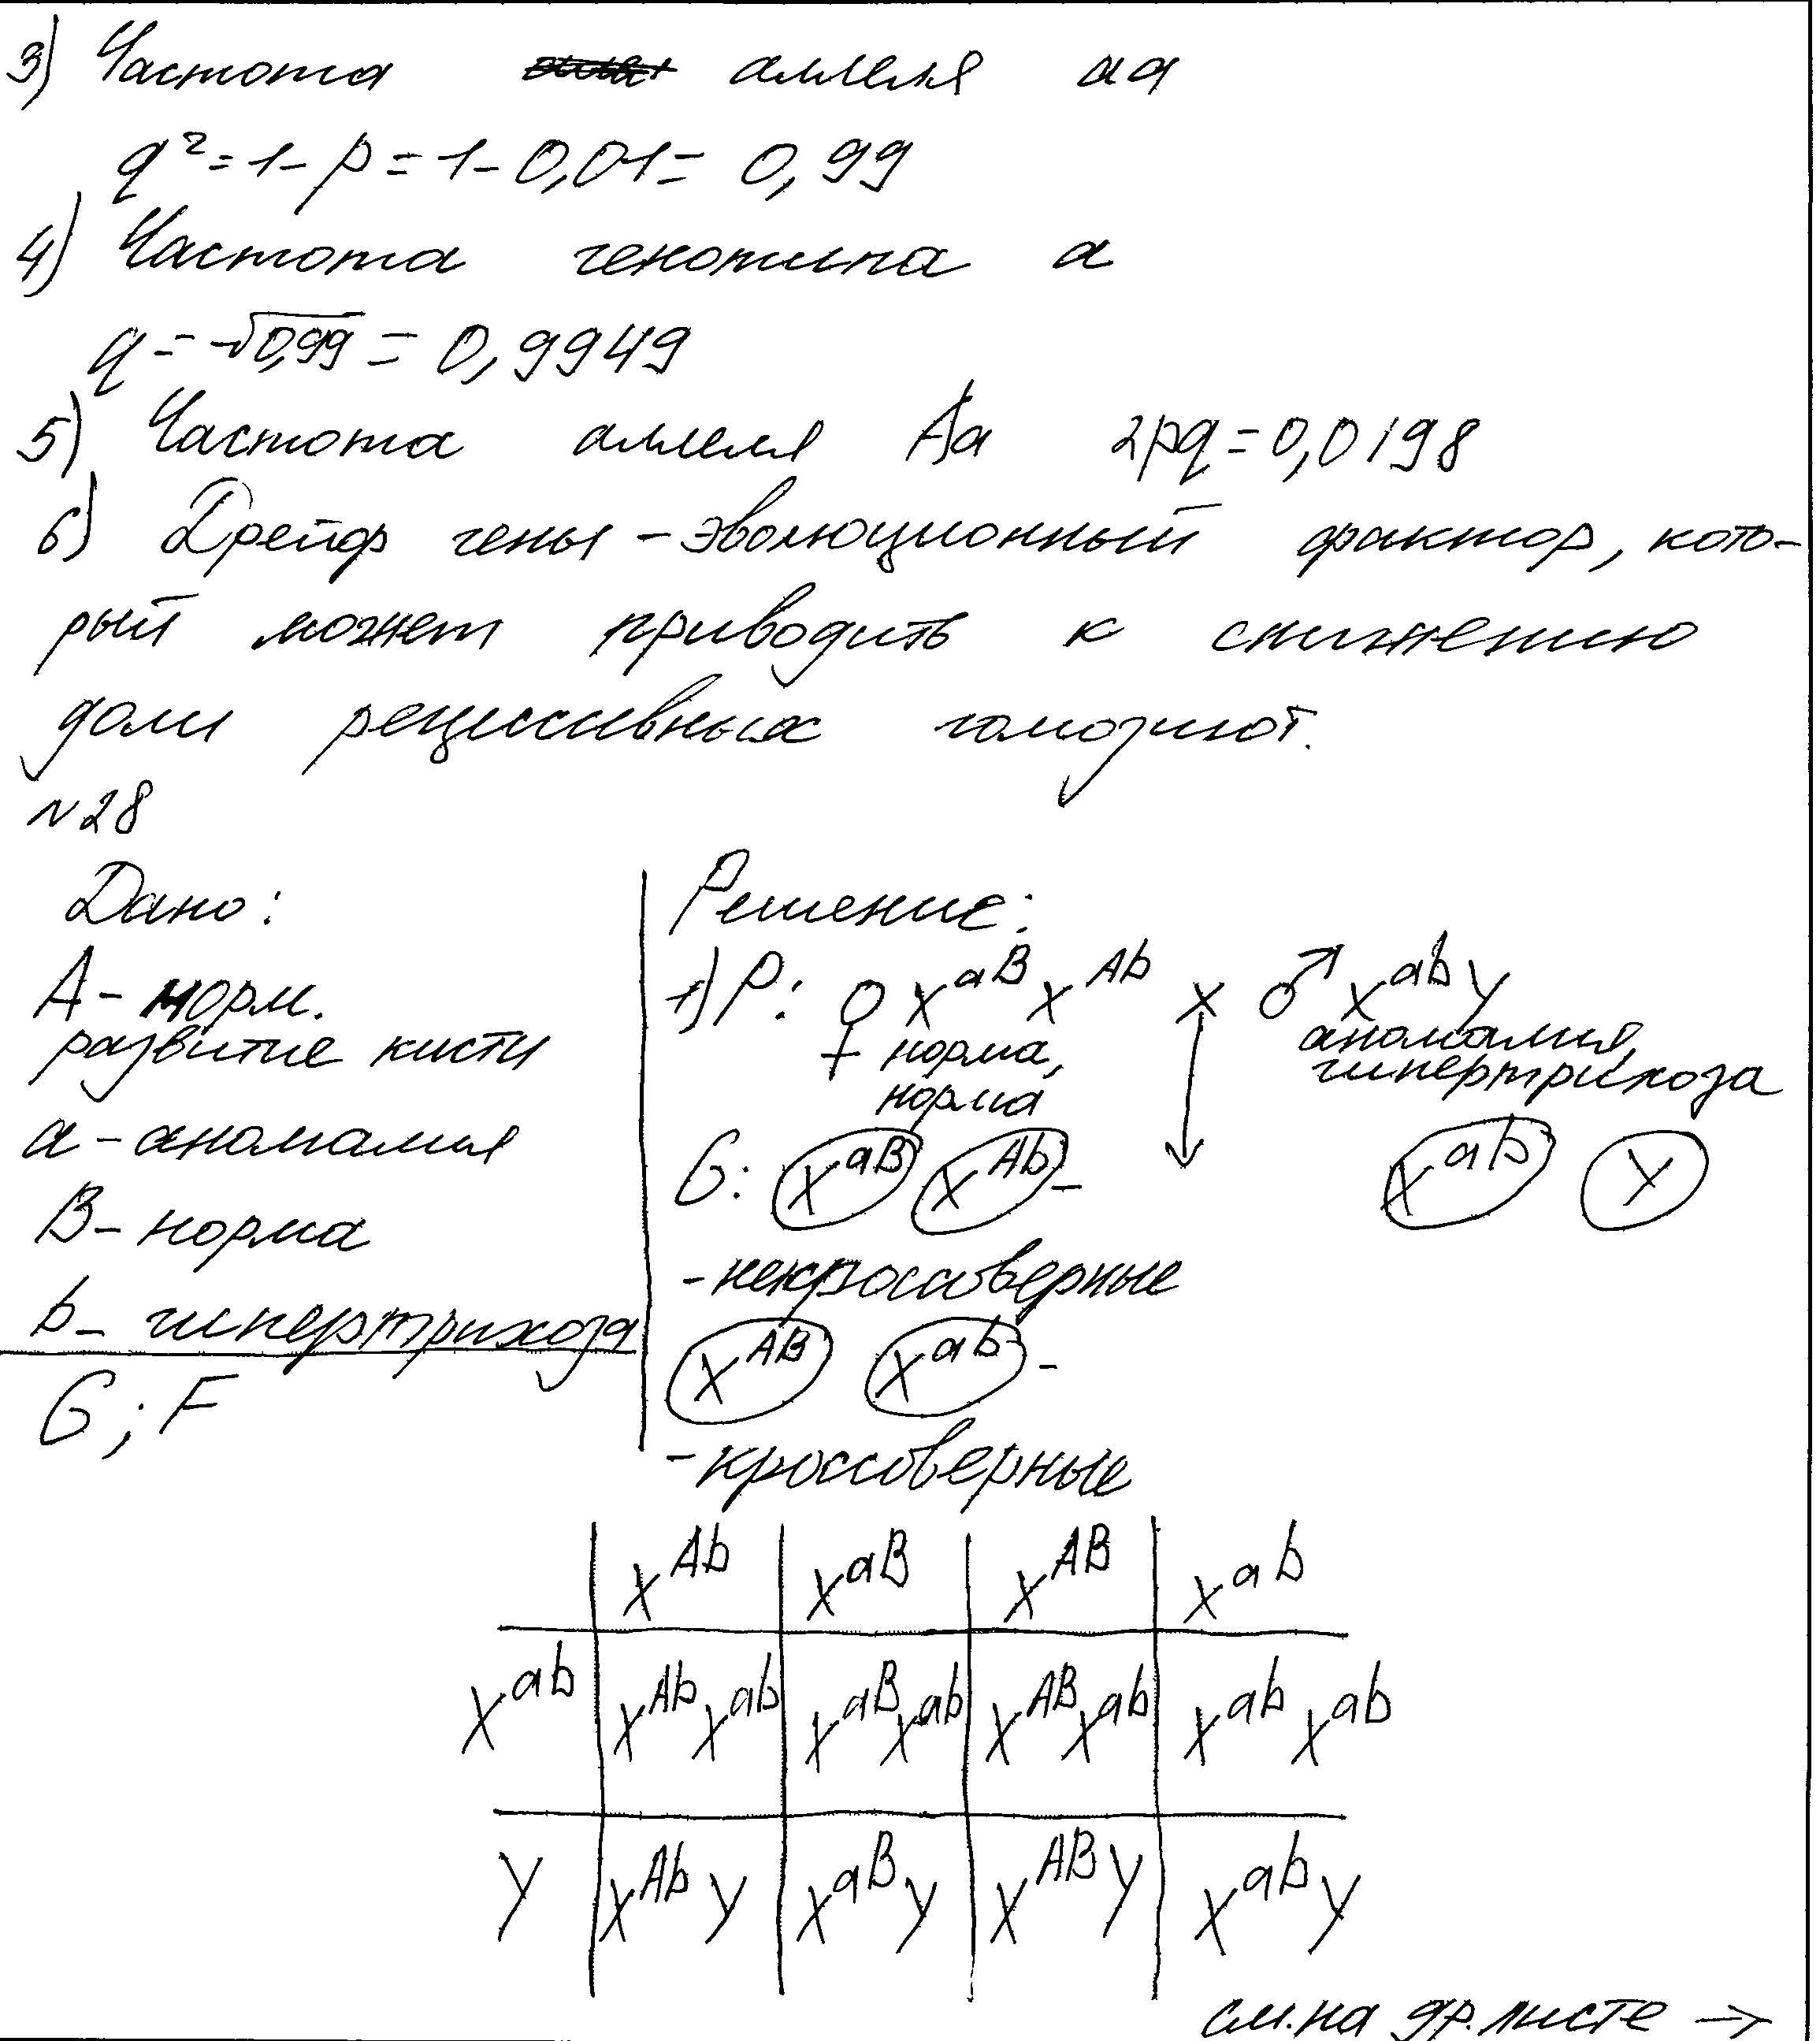 3) Частота аллеля аа
q² = 1 - p = 1 - 0,01 = 0,99
4) Частота генотипа а
q = √0,99 = 0,9949
5) Частота аллеля Аа 2pq = 0,0198
6) Дрейф гены - эволюционный фактор, кото-
рый может приводить к снижению
доли рецессивных гомозигот.
№28
Дано:
А - норм.
развитие кисти
а - аномалия
В - норма
b - гипертрихоза
G; F
Решение:
1) P: ♀ X^aB X^Ab × ♂ X^ab Y
норма, аномалия,
норма гипертрихоза
G: X^aB X^Ab - X^ab Y
- некроссоверные
X^AB X^ab -
- кроссоверные
X^Ab X^aB X^AB X^ab
X^ab X^Ab X^ab X^aB X^ab X^AB X^ab X^ab X^ab
Y X^Ab Y X^aB Y X^AB Y X^ab Y
см. на др. листе →